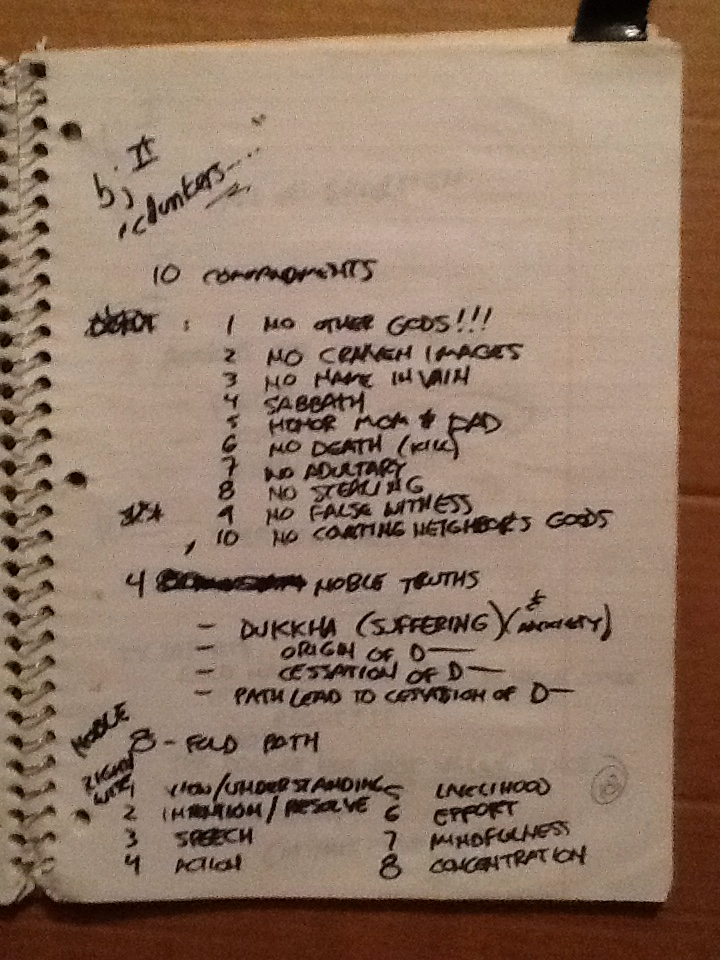 b. II
clunkers..."
10 COMMANDMENTS
: 1 NO OTHER GODS!!!
2 NO CRAVEN IMAGES
3 NO NAME IN VAIN
4 SABBATH
5 HONOR MOM & DAD
6 NO DEATH (KILL)
7 NO ADULTARY
8 NO STEALING
9 NO FALSE WITNESS
10 NO COVETING NEIGHBOR'S GOODS
4 NOBLE TRUTHS
- DUKKHA (SUFFERING) (& ANXIETY)
- ORIGIN OF D—
- CESSATION OF D—
- PATH LEAD TO CESSATION OF D—
NOBLE 8-FOLD PATH
RIGHT
1 VIEW/UNDERSTANDING 5 LIVELIHOOD
2 INTENTION/RESOLVE 6 EFFORT
3 SPEECH 7 MINDFULNESS
4 ACTION 8 CONCENTRATION